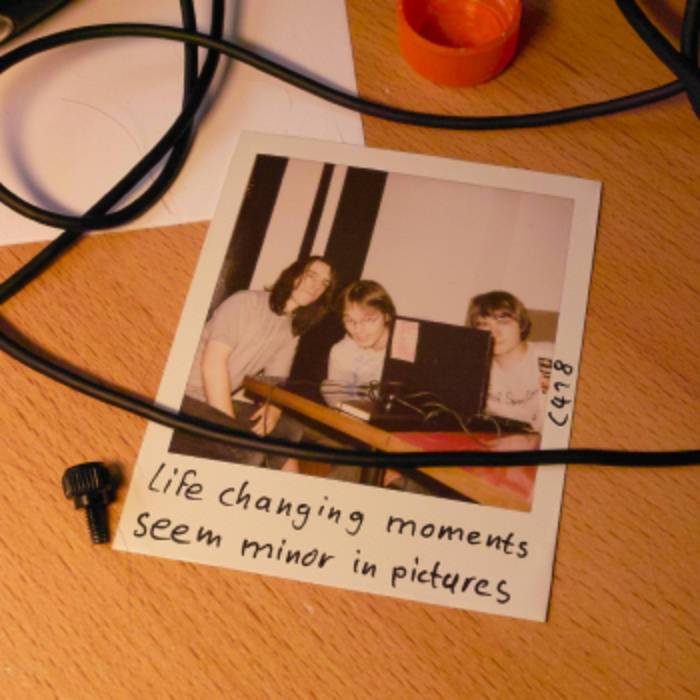 Life changing moments
seem minor in pictures
C418